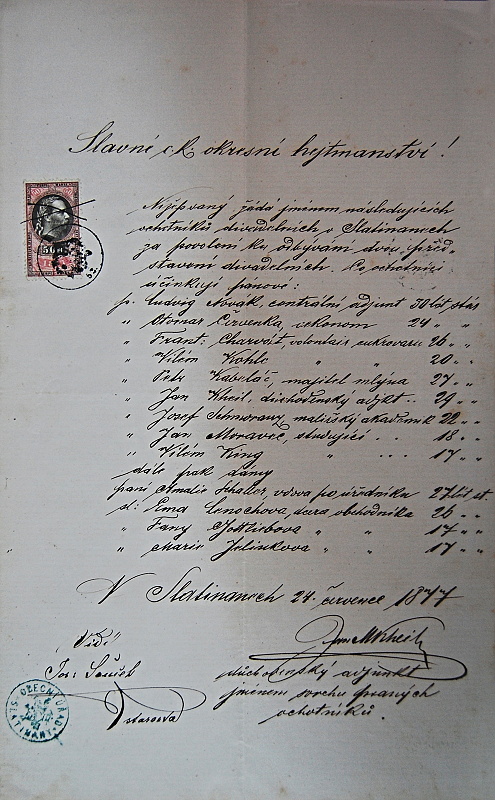 Slavné c.k. okresní hejtmanství!
Nejepsaný žádá jménem následujících
ochotníků divadelních v Slatinanech
za povolení ku odbývání dvou před-
stavení divadelních. Co ochotníci
účinkují panové:
p. Ludvig Novák, centrální adjunt 30 let stár
„ Otomar Červenka, oekonom 24 „ „
„ Frant: Charvát, volontair cukrovaru 26 „ „
„ Vilém Kohle „ „ 20 „ „
„ Petr Kabeláč, majitel mlýna 27 „ „
„ Jan Kheil, důchodenský adjkt. . 29 „ „
„ Josef Schmoranz, malířský akademik 22 „ „
„ Jan Moravec, studující . . 18 „ „
„ Vilém King „ . . . 17 „ „
dále pak dámy
paní Amalie Schaller, vdova po úředníku 27 let st.
sl: Ema Lenochova, dcera obchodníka 26 „ „
„ Fany Gottliebova „ „ 17 „ „
„ Marie Jelinkova „ „ 17 „ „
V Slatinanech 24. července 1877
Jan Kheil
„Vidí“
důchodenský adjunkt
Jos: Souček
jménem svrchu psaných
starosta
ochotníků.
50
OBECNÍ ÚŘAD
SLATINANY